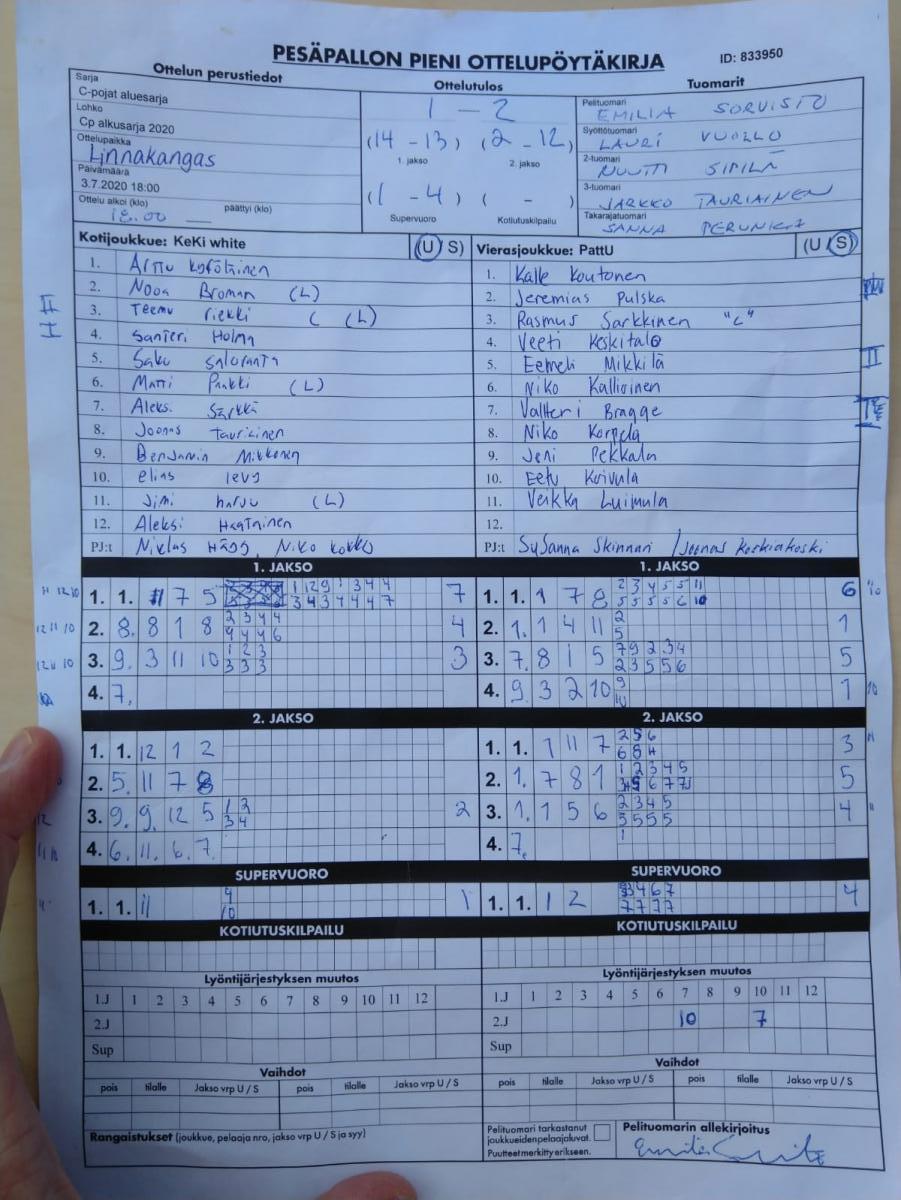 PESÄPALLON PIENI OTTELUPÖYTÄKIRJA
ID: 833950
Ottelun perustiedot
Sarja
C-pojat aluesarja
Lohko
Cp alkusarja 2020
Ottelupaikka
Linnakangas
Päivämäärä
3.7.2020 18:00
Ottelu alkoi (klo) päättyi (klo)
18.00
Ottelutulos
1 - 2
(14 - 13) (2 - 12)
1. jakso 2. jakso
(1 - 4) ( - )
Supervuoro Kotiutuskilpailu
Tuomarit
Pelituomari
EMILIA SORVISTO
Syöttötuomari
LAURI
2-tuomari
NUUTTI SIPILÄ
3-tuomari
JARKKO TAURIAINEN
Takarajatuomari
SANNA PERUNKA
Kotijoukkue: KeKi white (U S)
1. Arttu
2. Nooa Broman (L)
3. Teemu riekki ( (L)
4. Santeri Holma
5. Saku saloranta
6. Matti Pankki (L)
7. Aleksi Särkkä
8. Joonas tauriainen
9. Benjamin Mikkonen
10. elias
11. Jimi harju (L)
12. Aleksi Haatainen
PJ:t Niklas Hägg, Niko Kokko
Vierasjoukkue: PattU (U S)
1. Kalle Koutonen
2. Jeremias Pulska
3. Rasmus Sarkkinen "L"
4. Veeti Keskitalo
5. Eemeli Mikkilä
6. Niko Kallioinen
7. Valtteri Bragge
8. Niko Korpela
9. Jeni Pekkala
10. Eetu Koivula
11. Veikka Luimula
12.
PJ:t Susanna Skinnari / Joonas Koskiakoski
1. JAKSO
1. 1. 11 7 5 7
2. 8. 8 1 8 2 3 4 4 4
4 4 4 6
3. 9. 3 11 10 1 2 3 3
3 3 3
4. 7.
1. JAKSO
1. 1. 1 7 8 2 3 4 5 5 11 6
5 5 5 5 6 10
2. 1. 1 4 11 2 1
5
3. 7. 8 1 5 7 9 2 3 4 5
2 3 5 5 6
4. 9. 3 2 10 9 1
10
2. JAKSO
1. 1. 12 1 2
2. 5. 11 7 8
3. 9. 9. 12 5 1 2 2
3 4
4. 6. 11. 6. 7.
2. JAKSO
1. 1. 1 11 7 2 5 6 3
6 8 11
2. 1. 7 8 1 1 2 3 4 5 5
3. 1. 1 5 6 2 3 4 5 4
5 5 5 5
4. 7. 1
SUPERVUORO
1. 1. 11 4 1
10
SUPERVUORO
1. 1. 1 2 3 4 6 7 4
7 7 7 7
KOTIUTUSKILPAILU
KOTIUTUSKILPAILU
Lyöntijärjestyksen muutos
1.J 1 2 3 4 5 6 7 8 9 10 11 12
2.J
Sup
Lyöntijärjestyksen muutos
1.J 1 2 3 4 5 6 7 8 9 10 11 12
2.J 10 7
Sup
Vaihdot
pois tilalle Jakso vrp U / S pois tilalle Jakso vrp U / S
Vaihdot
pois tilalle Jakso vrp U / S pois tilalle Jakso vrp U / S
Rangaistukset (joukkue, pelaaja nro, jakso vrp U / S ja syy)
Pelituomari tarkastanut
joukkueidenpelaajaluvat.
Puutteetmerkitty erikseen.
Pelituomarin allekirjoitus